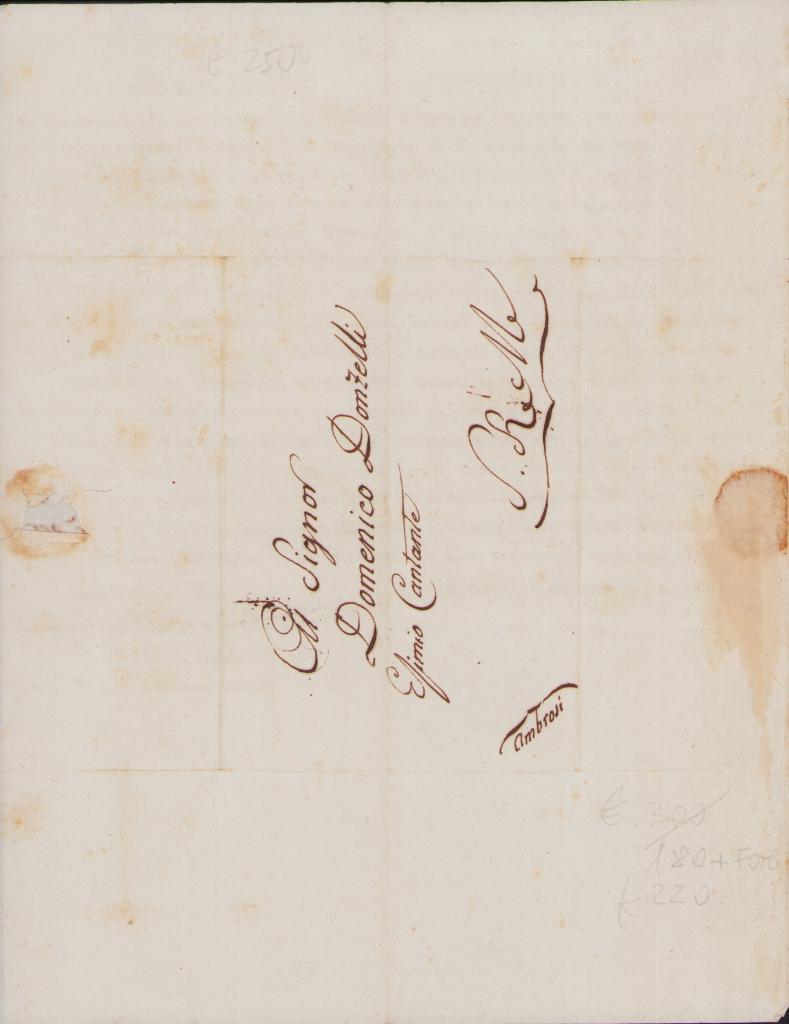 € 2500
Al Signor
Domenico Donzelli
Esimio Cantante
S. R. M.
Ambrosi
€ 300
180 + Foto
€ 220